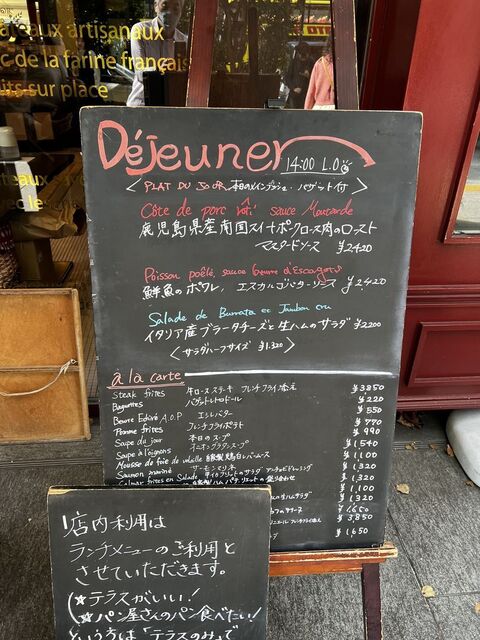 teaux artisanaux
c de la farine français
its sur place
Déjeuner 14:00 L.O
< PLAT DU JOUR 本日のメインプラッシュ・バゲット付 >
Côte de porc rôti sauce Moutarde
鹿児島県産南国スイートポークロース肉のロースト
マスタードソース ¥2,420
Poisson poêlé, sauce beurre d'Escargots
鮮魚のポワレ、エスカルゴバターソース ¥2,420
Salade de Burrata et Jambon cru
イタリア産ブラータチーズと生ハムのサラダ ¥2200
< サラダハーフサイズ ¥1,320 >
à la carte
Steak frites 牛ロースステーキ フレンチフライ添え ¥3850
Baguettes バゲットトラディショナル ¥220
Beurre Echiré A.O.P エシレバター ¥550
Pomme frites フレンチフライポテト ¥770
Soupe du jour 本日のスープ ¥990
Soupe à l'oignons オニオングラタンスープ ¥1,540
Mousse de foie de volaille 自家製 鶏白レバームース ¥1,100
Saumon mariné サーモンマリネ ¥1,320
Calmar frites en Salade ¥1,320
¥1,100
の生ハムサラダ ¥1,320
¥1,650
¥3,850
¥1,650
店内利用は
ランチメニューのご利用と
させていただきます。
(★テラスがいい!
☆パン屋さんのパン食べたい!
という方は「テラスのみ」で